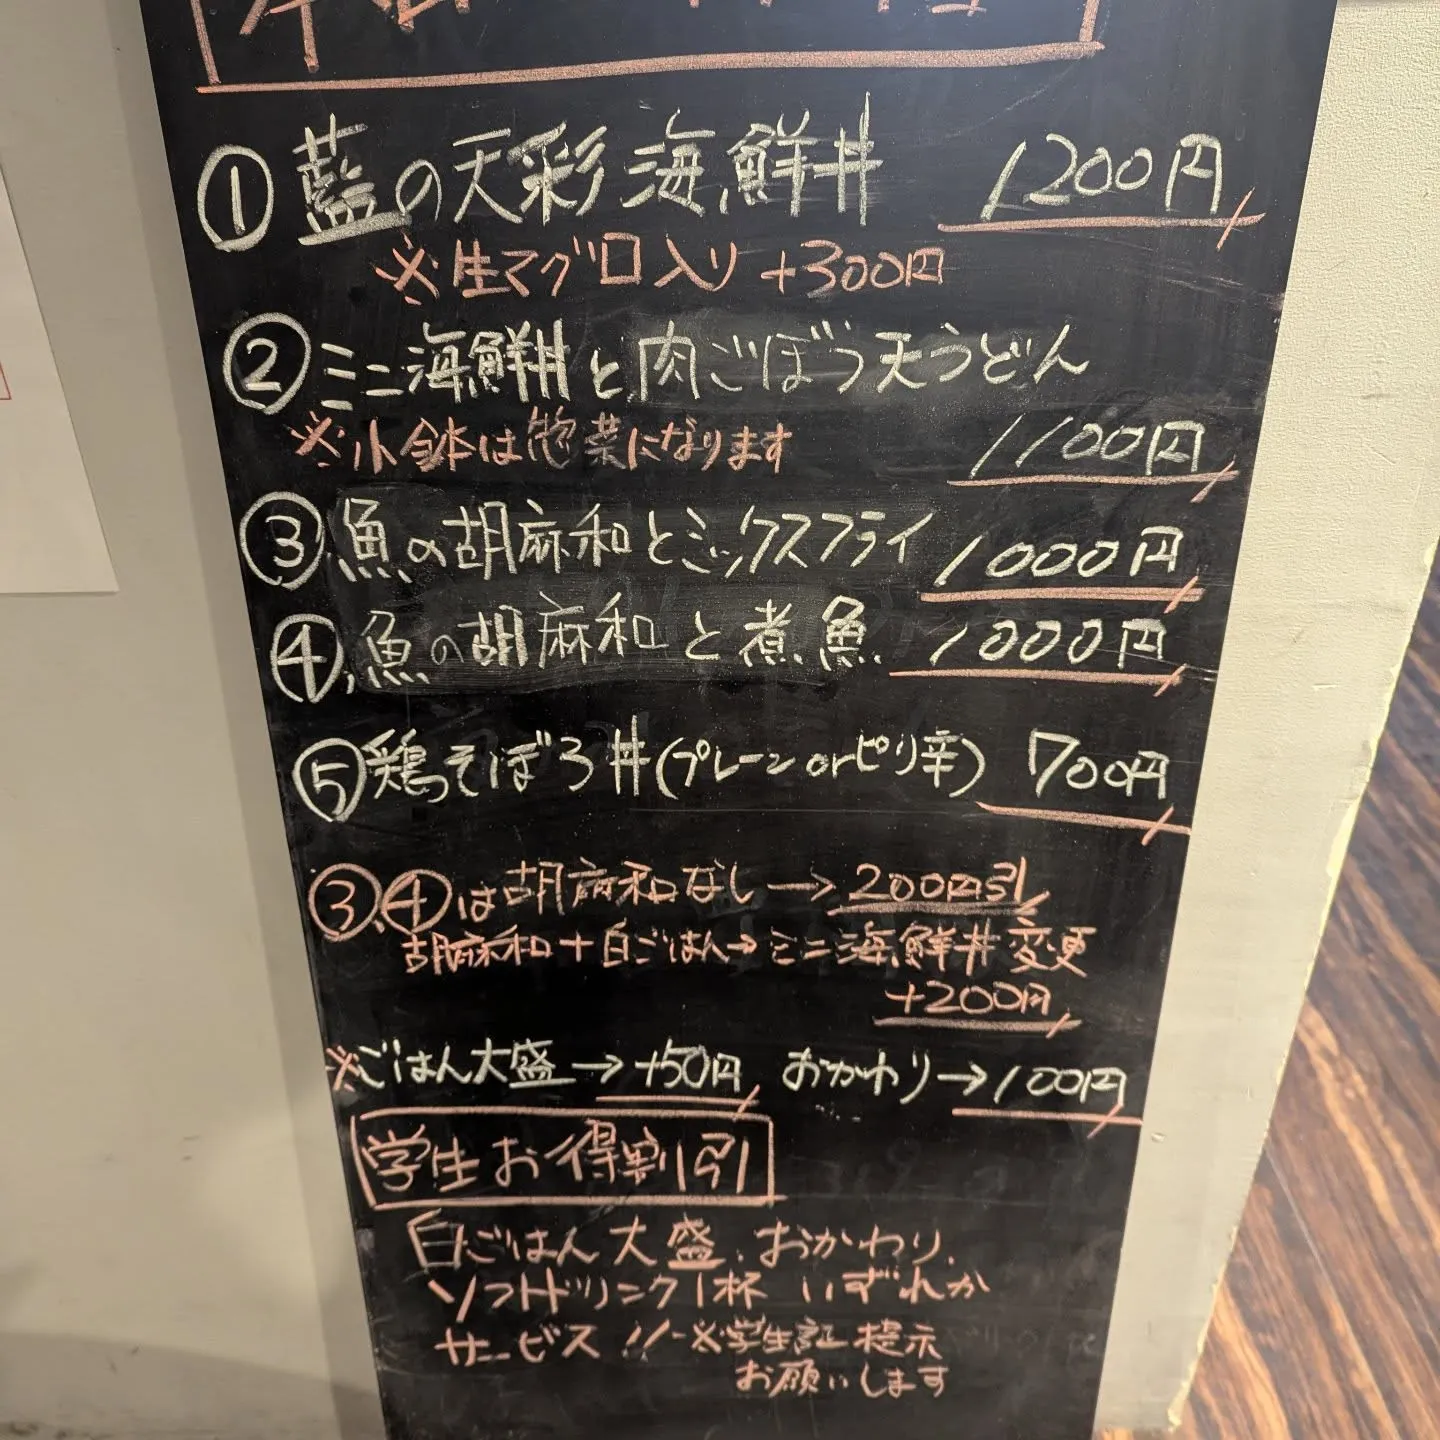 ① 藍の天彩海鮮丼 1200円
※生マグロ入り +300円
② ミニ海鮮丼と肉ごぼう天うどん
※小鉢は惣菜になります 1100円
③ 魚の胡麻和とミックスフライ 1000円
④ 魚の胡麻和と煮魚 1000円
⑤ 鶏そぼろ丼(プレーンorピリ辛) 700円
③④は胡麻和なし→200円引
胡麻和+白ごはん→ミニ海鮮丼変更
+200円
※ごはん大盛→+50円 おかわり→100円
学生お得割引
白ごはん大盛、おかわり、
ソフトドリンク1杯 いずれか
サービス!! ※学生証提示
お願いします